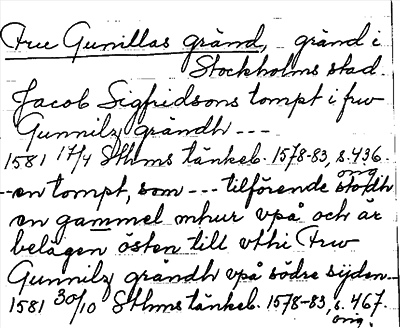 Fru Gunillas gränd, gränd i
Stockholms stad.
Jacob Sigfridsons tompt i frw
Gunnilz grändh ---
1581 17/4 Sthms tänkeb. 1578-83, s. 436.
orig.
-- en tompt, som --- tilförende stodh
en gammel mhur vpå och är
belägen östen till vthi Frw
Gunnilz grändh vpå södre sijden --
1581 30/10 Sthms tänkeb. 1578-83, s. 467.
orig.